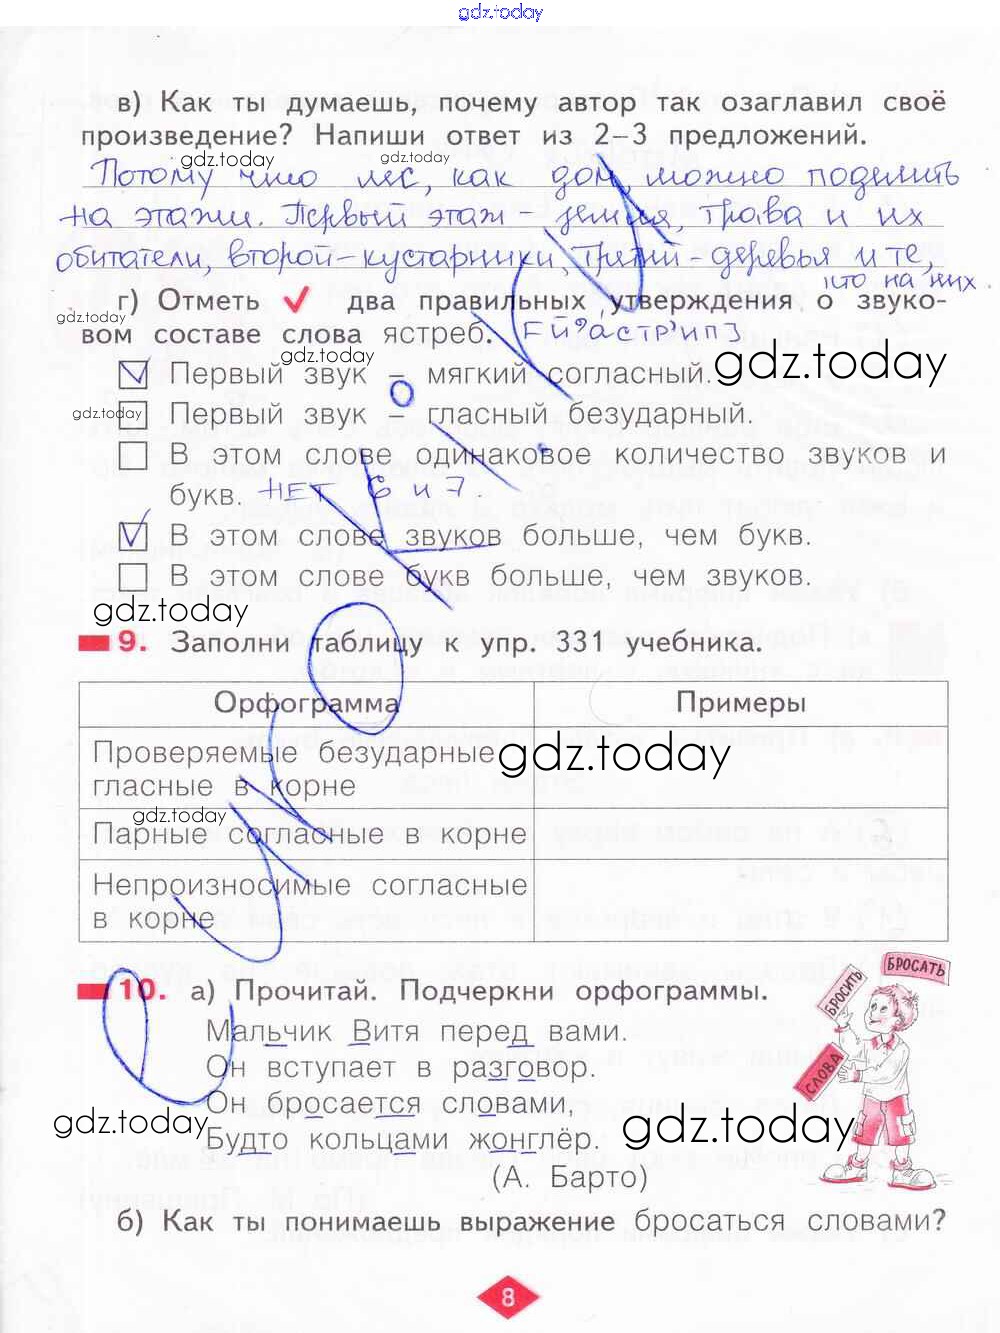 gdz.today
в) Как ты думаешь, почему автор так озаглавил своё
произведение? Напиши ответ из 2–3 предложений.
gdz.today gdz.today
Потому что лес, как дом, можно поделить
на этажи. Первый этаж – земля, трава и их
обитатели, второй – кустарники, третий – деревья и те,
кто на них.
г) Отметь ✓ два правильных утверждения о звуко-
gdz.today
вом составе слова ястреб. [й'астр'ип]
gdz.today
☑ Первый звук – мягкий согласный.
gdz.today
gdz.today
☐ Первый звук – гласный безударный.
☐ В этом слове одинаковое количество звуков и
букв. НЕТ 6 и 7.
☑ В этом слове звуков больше, чем букв.
☐ В этом слове букв больше, чем звуков.
gdz.today
9. Заполни таблицу к упр. 331 учебника.
Орфограмма Примеры
Проверяемые безударные
гласные в корне
gdz.today
gdz.today
Парные согласные в корне
Непроизносимые согласные
в корне
10. а) Прочитай. Подчеркни орфограммы.
БРОСИТЬ БРОСАТЬ
СЛОВА
Мальчик Витя перед вами.
Он вступает в разговор.
Он бросается словами,
gdz.today gdz.today
Будто кольцами жонглёр.
(А. Барто)
б) Как ты понимаешь выражение бросаться словами?
8